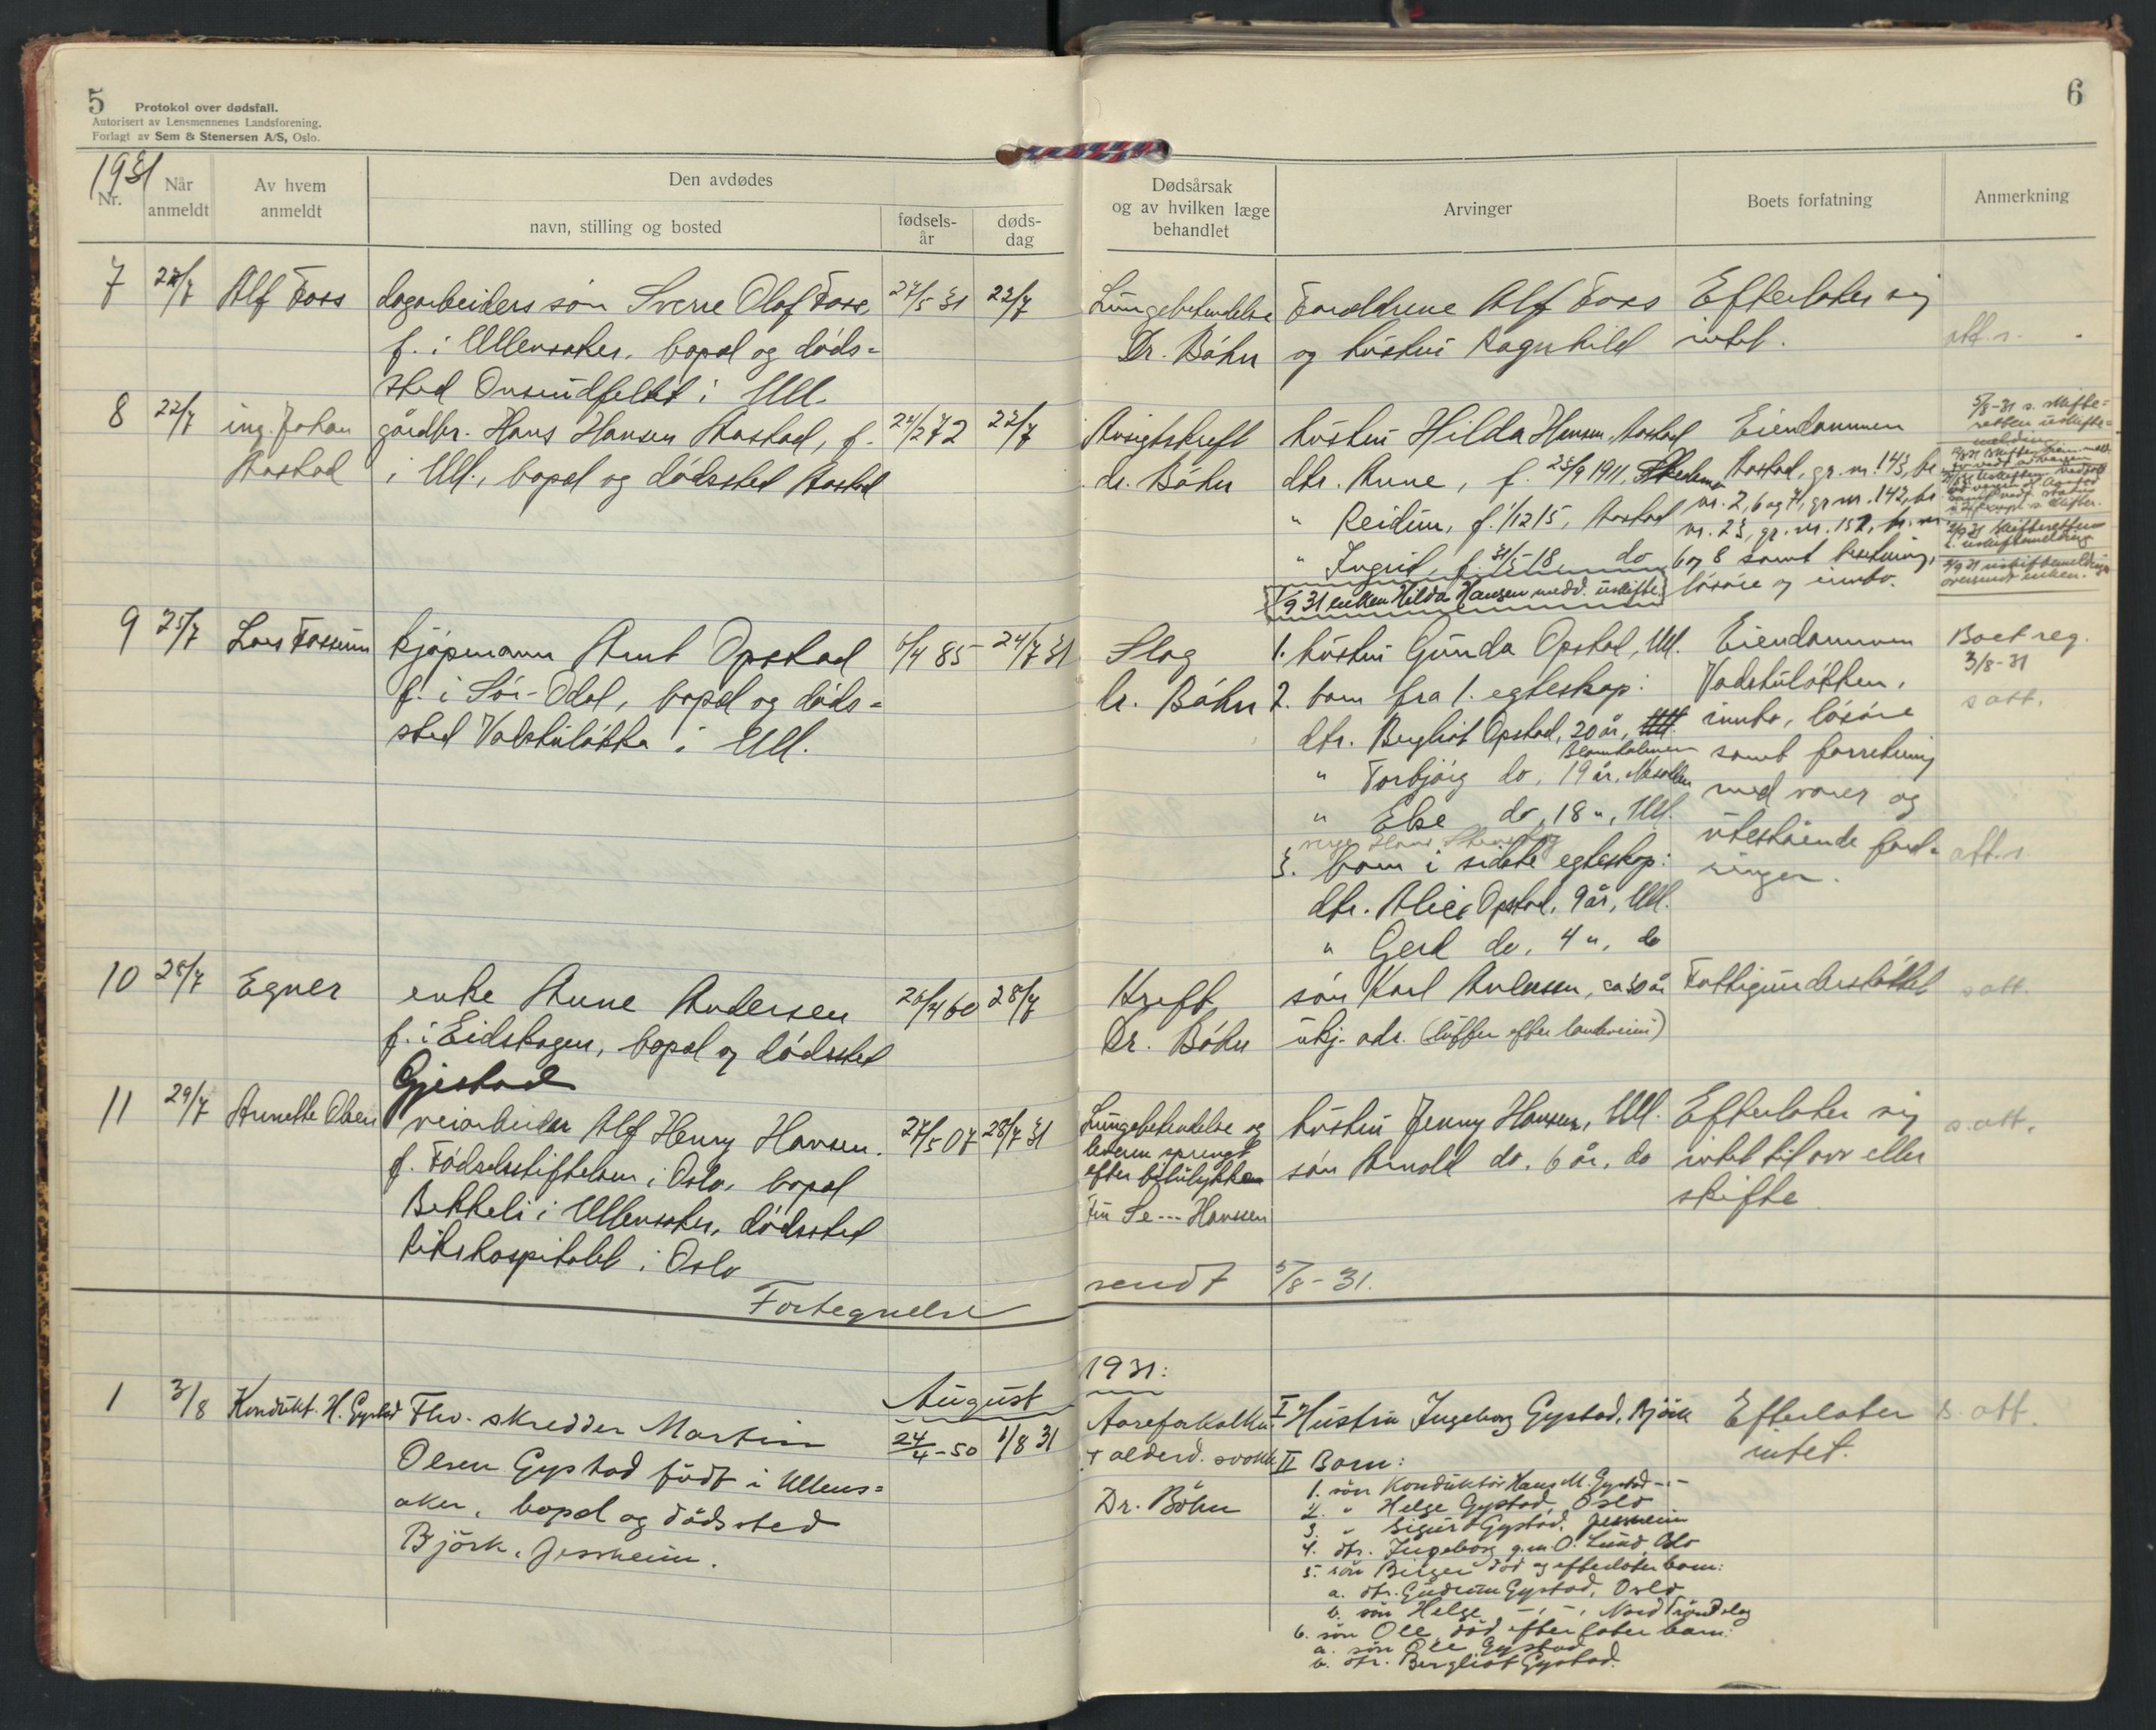 5 Protokol over dødsfall.
Autorisert av Lensmennenes Landsforening.
Forlagt av Sem & Stenersen A/S, Oslo.
6
1931
Nr.
Når anmeldt
Av hvem anmeldt
Den avdødes
navn, stilling og bosted
fødsels-
år
døds-
dag
Dødsårsak
og av hvilken læge
behandlet
Arvinger
Boets forfatning
Anmerkning
7 22/7 Alf Foss dagarbeiders søn Sverre Olaf Foss, 27/5 31 22/7
f. i Ullensaker, bopæl og døds=
sted Onsrudfeltet i Ull.
Lungebetendelse
Dr. Bøhn
Foreldrene Alf Foss
og hustru Ragnhild
Efterlater sig
intet.
att. s.
8 22/7 ing. Johan gårdbr. Hans Hansen Aastad, f. 24/2 72 22/7
Aastad i Ull., bopæl og dødssted Aastad
Ansigtskreft
dr. Bøhn
hustru Hilda Hansen Aastad
dtr. Anne, f. 25/9 1911,
" Reidun, f. 1/12 15, Aastad
" Ingrid, f. 31/5 18, do
1/9 31 enken Hilda Hansen medd. uskifte.
Eiendommen
Aastad, gr. nr. 143, br.
nr. 2, 6 og 7, gr. nr. 142, br.
nr. 23, gr. nr. 152, br. nr.
6 og 8 samt besetning,
løsøre og innbo.
5/8-31 s. skifte=
retten uskifte=
melding
9 25/7 Lars Fossum kjøpmann Arnt Opstad 6/4 85 24/7 31
f. i Sør-Odal, bopæl og døds=
sted Valstuløkka i Ull.
Slag
dr. Bøhn
1. hustru Gunda Opstad, Ull.
2. barn fra 1. egteskap:
dtr. Bergliot Opstad, 20 år,
" Torbjørg do, 19 år,
" Else do, 18 ", Ull.
3. barn i sidste egteskap:
dtr. Alice Opstad, 9 år, Ull.
" Gerd do, 4 ", do
Eiendommen
Valstuløkken,
innbo, løsøre
samt forretning
med varer og
utestående ford-
ringer.
Boet reg.
3/8-31
s att.
att. s
10 28/7 Egner enke Anne Andersen 26/4 60 28/7
f. i Eidskogen, bopæl og dødssted
Gjestad
Kreft
Dr. Bøhn
søn Karl Andersen, ca 30 år
ukj. adr. (luffer efter landeveien)
Fattigunderstøttet
s att.
11 29/7 Annette Olsen veiarbeider Alf Henry Hansen. 27/5 07 28/7 31
f. Fødselsstiftelsen i Oslo, bopæl
Bekkeli i Ullensaker, dødssted
Rikshospitalet i Oslo
Lungebetendelse og
leveren sprengt
efter bilulykke
Hanssen
hustru Jenny Hansen, Ull.
søn Arnold do. 6 år, do
Efterlater sig
intet til arv eller
skifte
s. att.
Fortegnelse sendt 5/8-31.
August 1931:
1 3/8 Kondukt. H. Gystad Fhv. skredder Martin 24/4-50 1/8 31
Olsen Gystad født i Ullens=
aker, bopæl og dødssted
Bjørk, Jessheim.
Aareforkalkn.
+ alderd. svakh.
Dr. Bøhn
I Hustru Ingeborg Gystad, Bjørk
II Barn:
1. søn Konduktør Hans M. Gystad -"-
2. " Helge Gystad, Oslo
3. " Sigurd Gystad, Jessheim
4. dtr. Ingeborg g.m. O. Lund, Oslo
5. søn Birger død og efterlater barn:
a. dtr. Gudrun Gystad, Oslo
b. søn Helge -"-, Nord Trøndelag
6. søn Ole, død, efterlater barn:
a. søn Ole Gystad
b. dtr. Bergliot Gystad.
Efterlater
intet.
s. att.